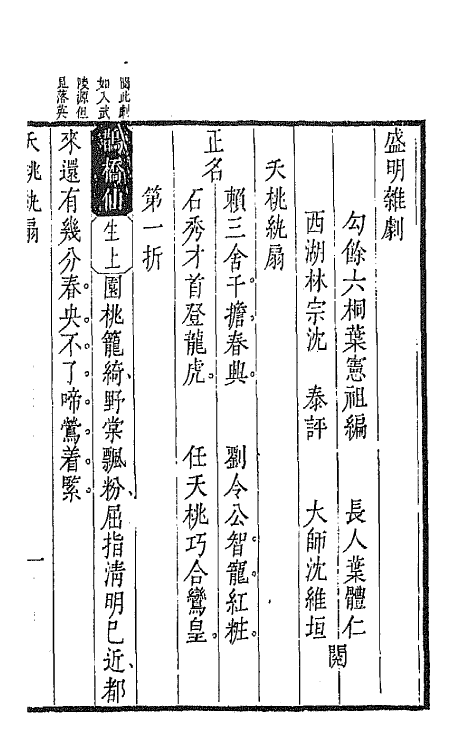 盛明雜劇
勾餘六桐葉憲祖編　長人葉體仁
西湖林宗沈　泰評　大師沈維垣
閱
夭桃紈扇
正名
賴三舍千擔春典。　劉令公智寵紅粧。
石秀才首登龍虎。　任夭桃巧合鸞皇。
第一折
鵲橋仙 生上 園桃籠綺、野棠飄粉、屈指清明已近、都
來還有幾分春。央不了啼鶯着緊。
閱此劇
如入武
陵源但
見落英
夭桃紈扇
一